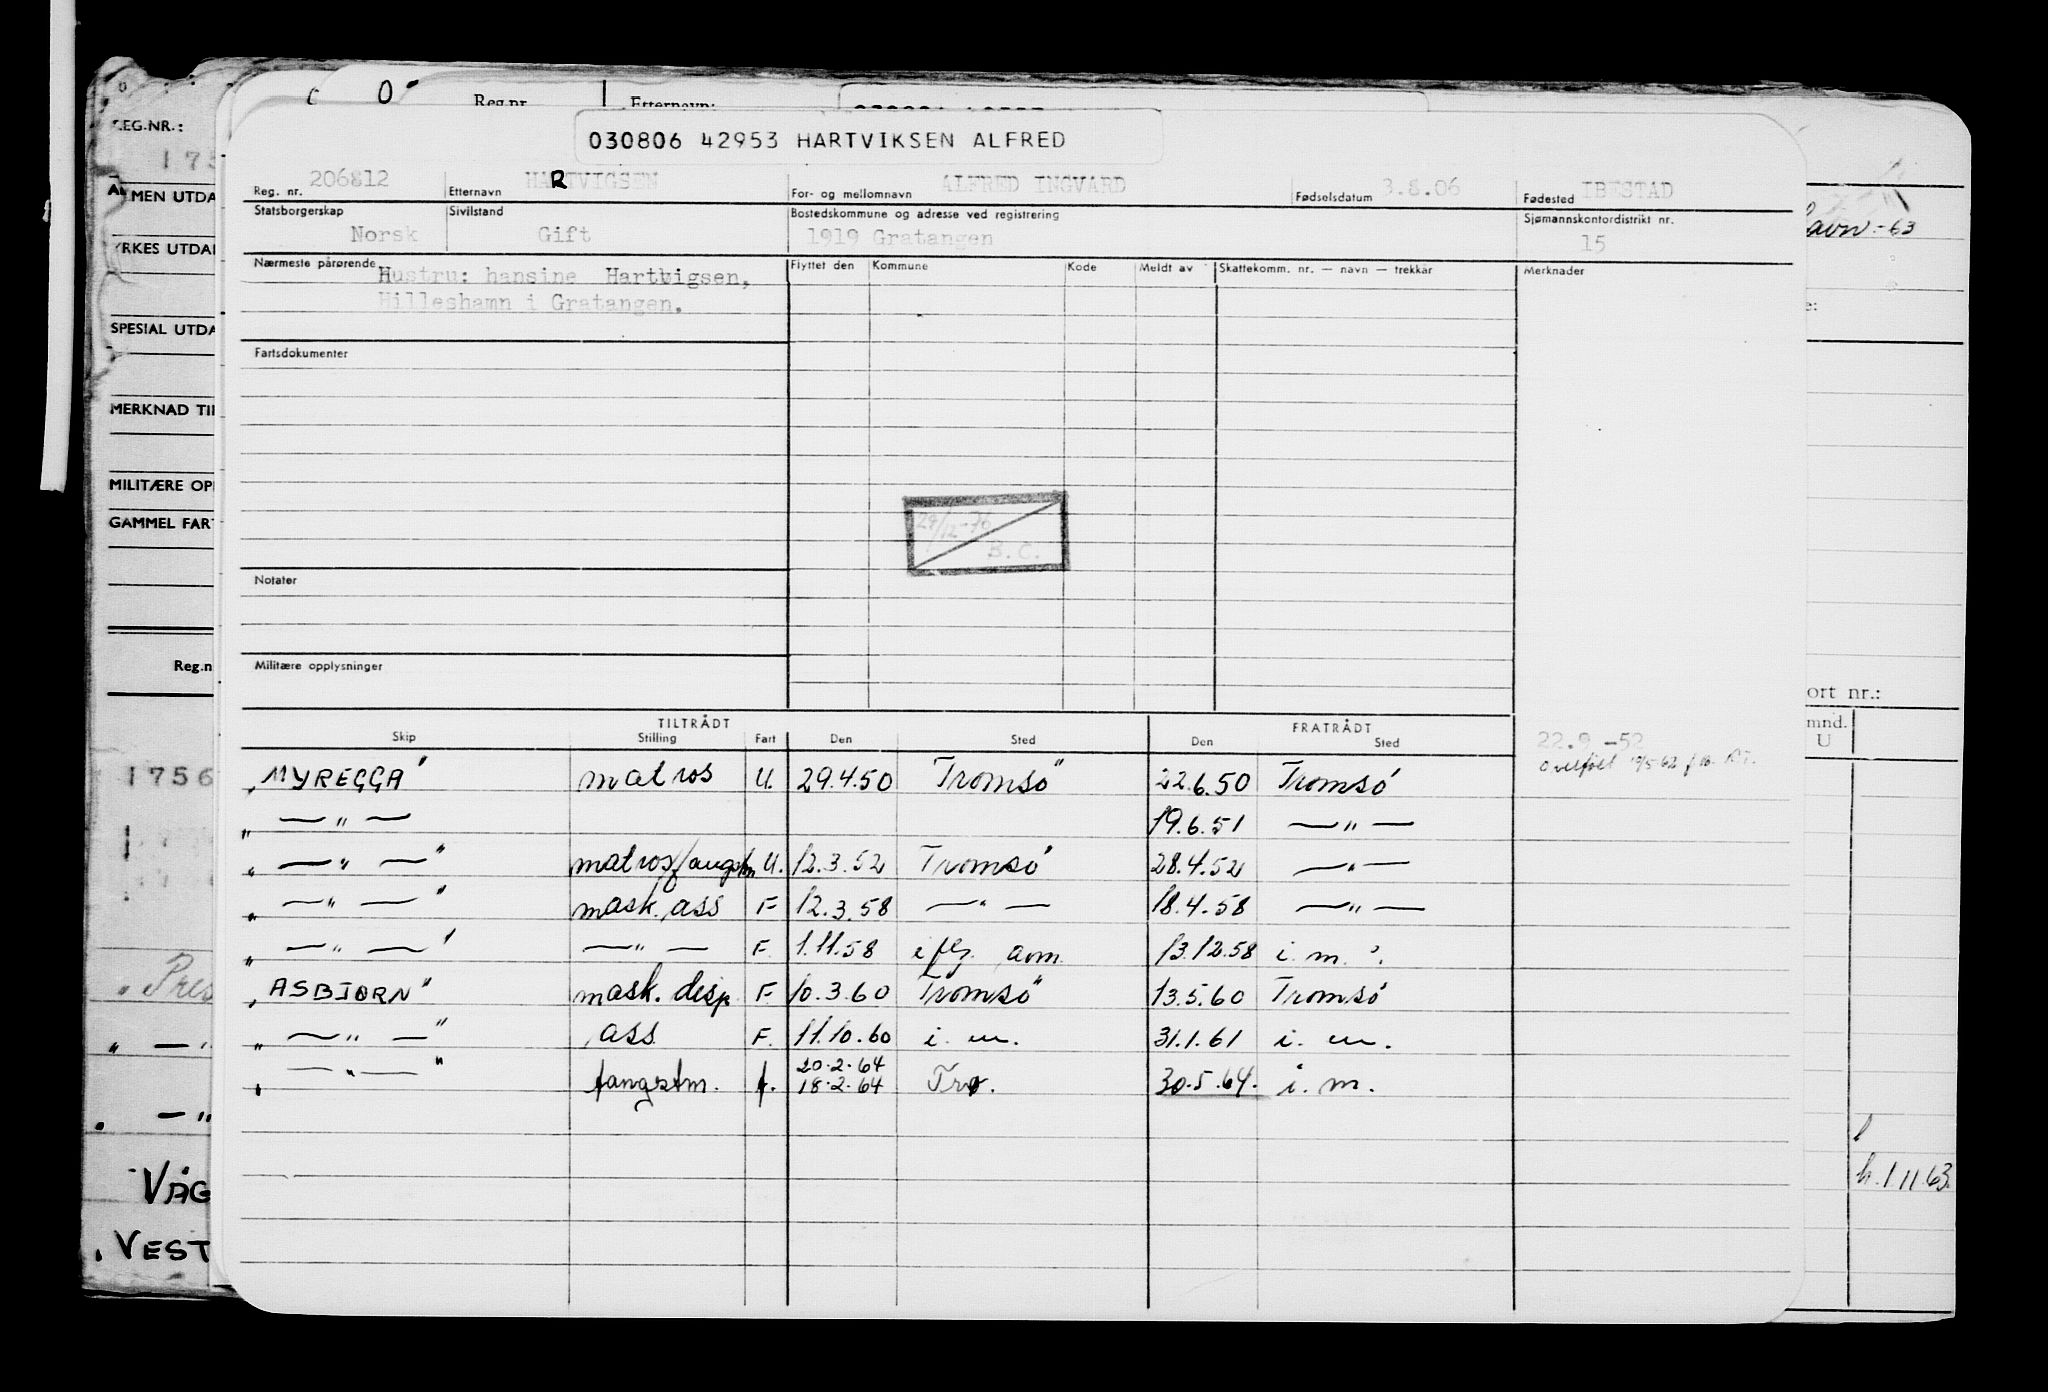 O
Reg.nr.
Etternavn:
REG.NR.:
175
030806 42953 HARTVIKSEN ALFRED
Reg. nr. 206812 Etternavn HARTVIGSEN For- og mellomnavn ALFRED INGVARD Fødselsdatum 3.8.06 Fødested IBESTAD
ALMEN UTDA
Statsborgerskap Norsk Sivilstand Gift Bostedskommune og adresse ved registrering 1919 Gratangen Sjømannskontordistrikt nr. 15
havn -63
YRKES UTDA
Nærmeste pårørende Hustru: hansine Hartvigsen,
Hilleshamn i Gratangen.
Flyttet den Kommune Kode Meldt av Skattekomm. nr. — navn — trekkår Merknader
SPESIAL UTDA
Fartsdokumenter
MERKNAD TI
MILITÆRE OP
GAMMEL FAR
29/12-76
B.C.
Notater
Militære opplysninger
Reg.n
ort nr.:
mnd.
U
TILTRÅDT FRATRÅDT
Skip Stilling Fart Den Sted Den Sted
22.9 -52
overført 19/5-62
"MYREGGA" matros U. 29.4.50 Tromsö 22.6.50 Tromsö
" — " — 19.6.51 — " —
" — " — " matros/fangstm U. 12.3.52 Tromsö 28.4.52 — " —
" — " — " mask. ass F 12.3.58 — " — 18.4.58 — " —
" — " — " — " — F. 1.11.58 13.12.58 i. m.
"ASBJØRN" mask. disp F 10.3.60 Tromsö 13.5.60 Tromsö
" — " — " ass F. 11.10.60 i. m. 31.1.61 i. m.
" — " — " fangstm. f. 20.2.64 18.2.64 Tro. 30.5.64. i. m.
1756
" Pres
" — "
" — "
VÅG
"VEST
h.1.11.63.